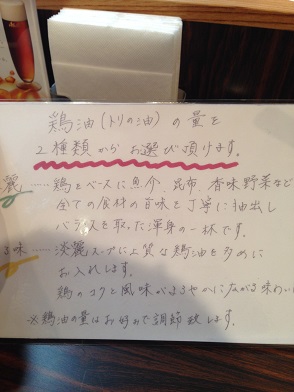 鶏油(トリの油)の量を
2種類からお選び頂けます。
麗……鶏をベースに魚介、昆布、香味野菜など
全ての食材の旨味を丁寧に抽出し
バランスを取った渾身の一杯です。
味……淡麗スープに上質な鶏油を多めに
お入れします。
鶏のコクと風味がまろやかに広がる味わい
※鶏油の量はお好みで調節致します。